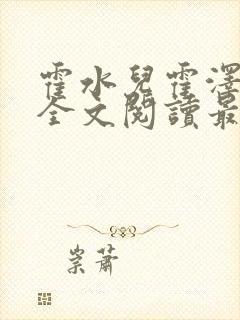 霍水兒霍澤
全文閱讀最
崇蕭